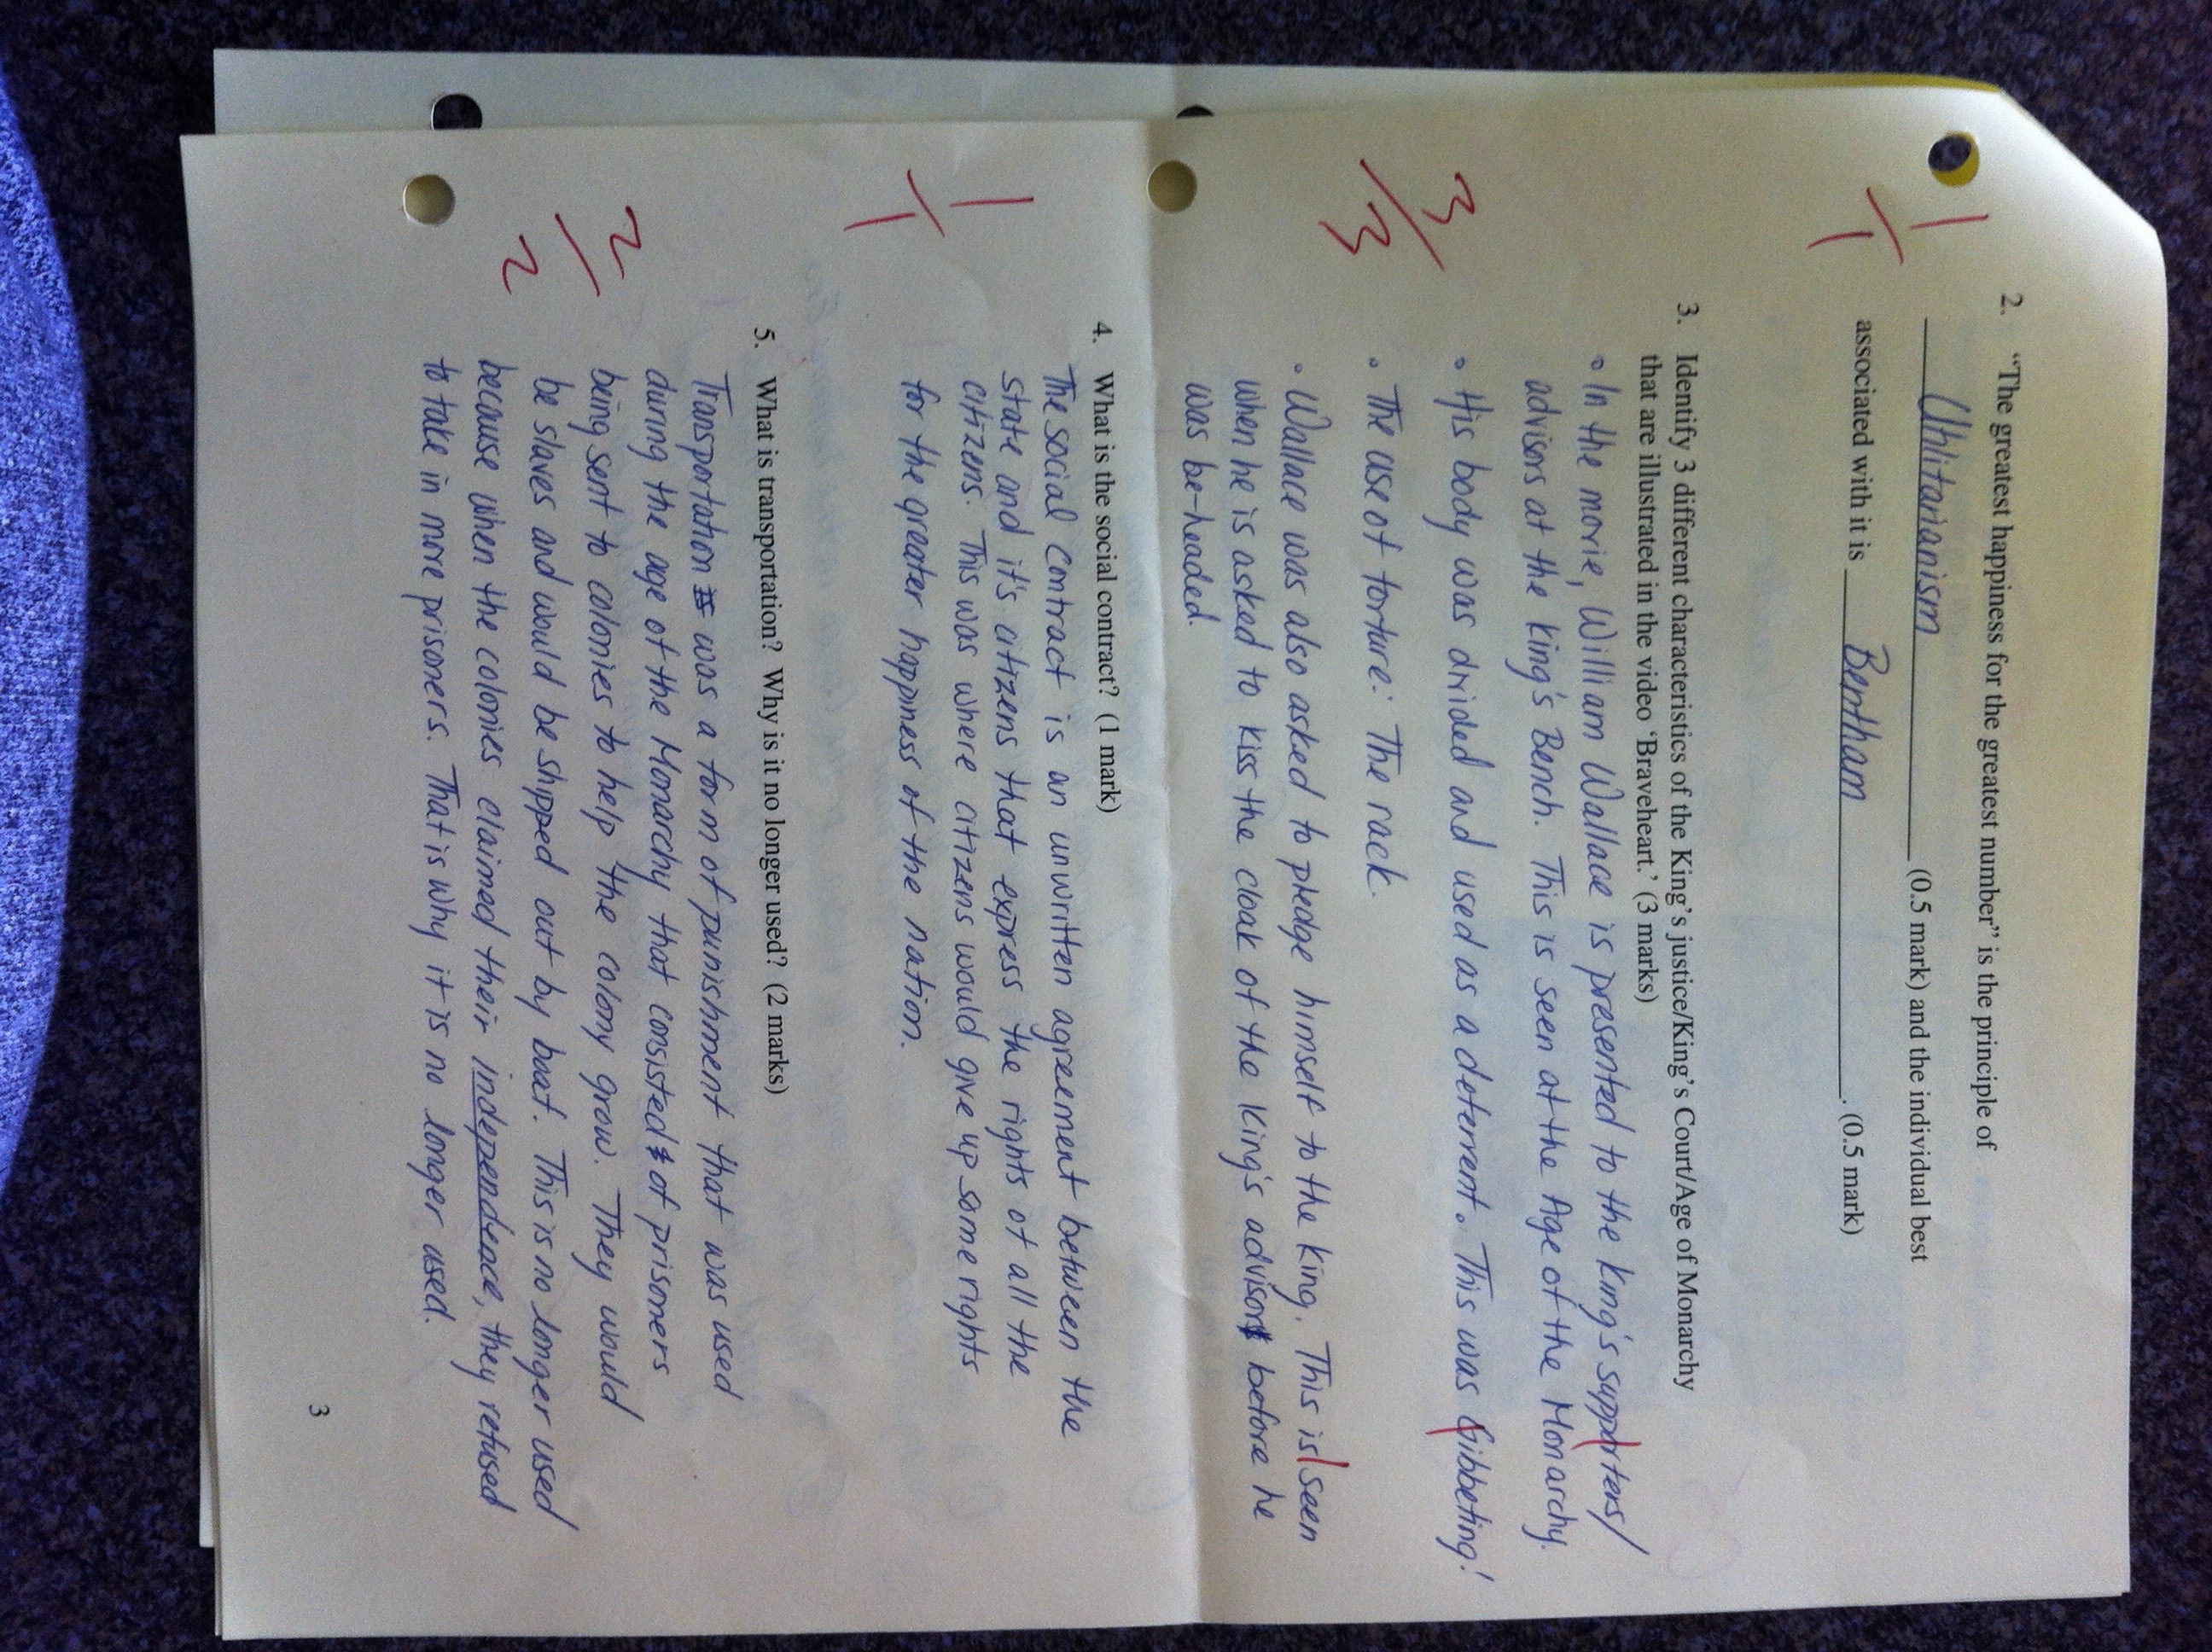 1/1
2. "The greatest happiness for the greatest number" is the principle of
Utilitarianism (0.5 mark) and the individual best
associated with it is Bentham. (0.5 mark)
3/3
3. Identify 3 different characteristics of the King's justice/King's Court/Age of Monarchy
that are illustrated in the video 'Braveheart.' (3 marks)
• In the movie, William Wallace is presented to the King's supporters/
advisors at the King's Bench. This is seen at the Age of the Monarchy.
• His body was divided and used as a deterrent. This was Gibbeting!
• The use of torture: The rack.
• Wallace was also asked to pledge himself to the king. This is seen
when he is asked to kiss the cloak of the King's advisor before he
was be-headed.
1/1
4. What is the social contract? (1 mark)
The social contract is an unwritten agreement between the
state and it's citizens that express the rights of all the
citizens. This was where citizens would give up some rights
for the greater happiness of the nation.
2/2
5. What is transportation? Why is it no longer used? (2 marks)
Transportation was a form of punishment that was used
during the age of the Monarchy that consisted of prisoners
being sent to colonies to help the colony grow. They would
be slaves and would be shipped out by boat. This is no longer used
because when the colonies claimed their independence, they refused
to take in more prisoners. That is why it is no longer used.
3